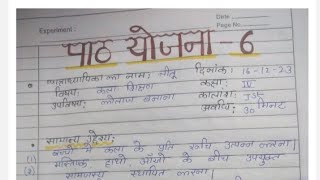 Experiment :
Date
Page No.
पाठ योजना - 6
छात्राध्यापिका का नाम: नीतू दिनांक: 16-12-23
विषय: कला शिक्षा कक्षा: IV
उपविषय: कोलाज बनाना कालांश:
अवधि: 30 मिनट
सामान्य उद्देश्य:
(1) बच्चों में कला के प्रति रूचि उत्पन्न करना।
(2) मस्तिष्क हाथों, आँखों के बीच उपयुक्त
सामंजस्य स्थापित करना।